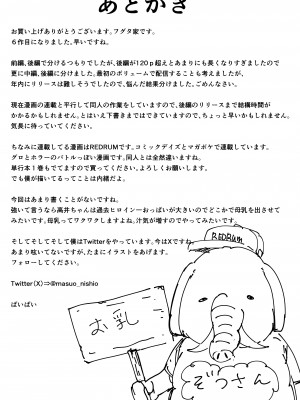 あとがき
お買い上げありがとうございます。フグタ家です。
６作目になりました。早いですね。
前編、後編で分けるつもりでしたが、後編が120p超えとあまりにも長くなりすぎましたので
更に中編、後編に分けました。最初のボリュームで配信することも考えましたが、
年内にリリースは難しそうでしたので、悩んだ結果分けました、ごめんなさい。
現在漫画の連載と平行して同人の作業をしていますので、後編のリリースまで結構時間が
かかるかもしれません。とはいえ下書きまではできていますので、ちょっと早いかもしれません。
気長に待っていてください。
ちなみに連載してる漫画はREDRUMです。コミックデイズとマガポケで連載しています。
グロとホラーのバトルっぽい漫画です。同人とは全然違いますね。
単行本１巻もでてますので買ってください。よろしくお願いします。
でも僕が描いてるってことは内緒だよ。
今回はあまり書くことがないですね。
強いて言うなら高井ちゃんは過去ヒロイン一おっぱいが大きいのでどこかで母乳を出させて
みたいです。母乳ってワクワクしますよね。汁気が増すのでやってみたいです。
そしてそしてそして僕はTwitterをやっています。今はXですね。
あまり呟いてないですが、たまにイラストをあげます。
フォローしてください。
Twitter（X）⇒@masuo_nishio
ばいばい
REDRUM
お乳
ぞうさん